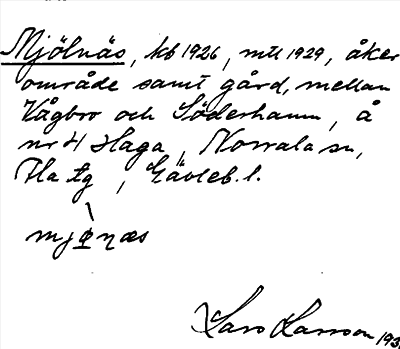 Mjölnäs, kb 1926, mtl 1929, åker
område samt gård, mellan
Vågbro och Söderhamn, å
nr 4 Haga, Norrala sn,
Ha tg, Gävleb. l.
mjɷ̨næs
Lars Larsson 193